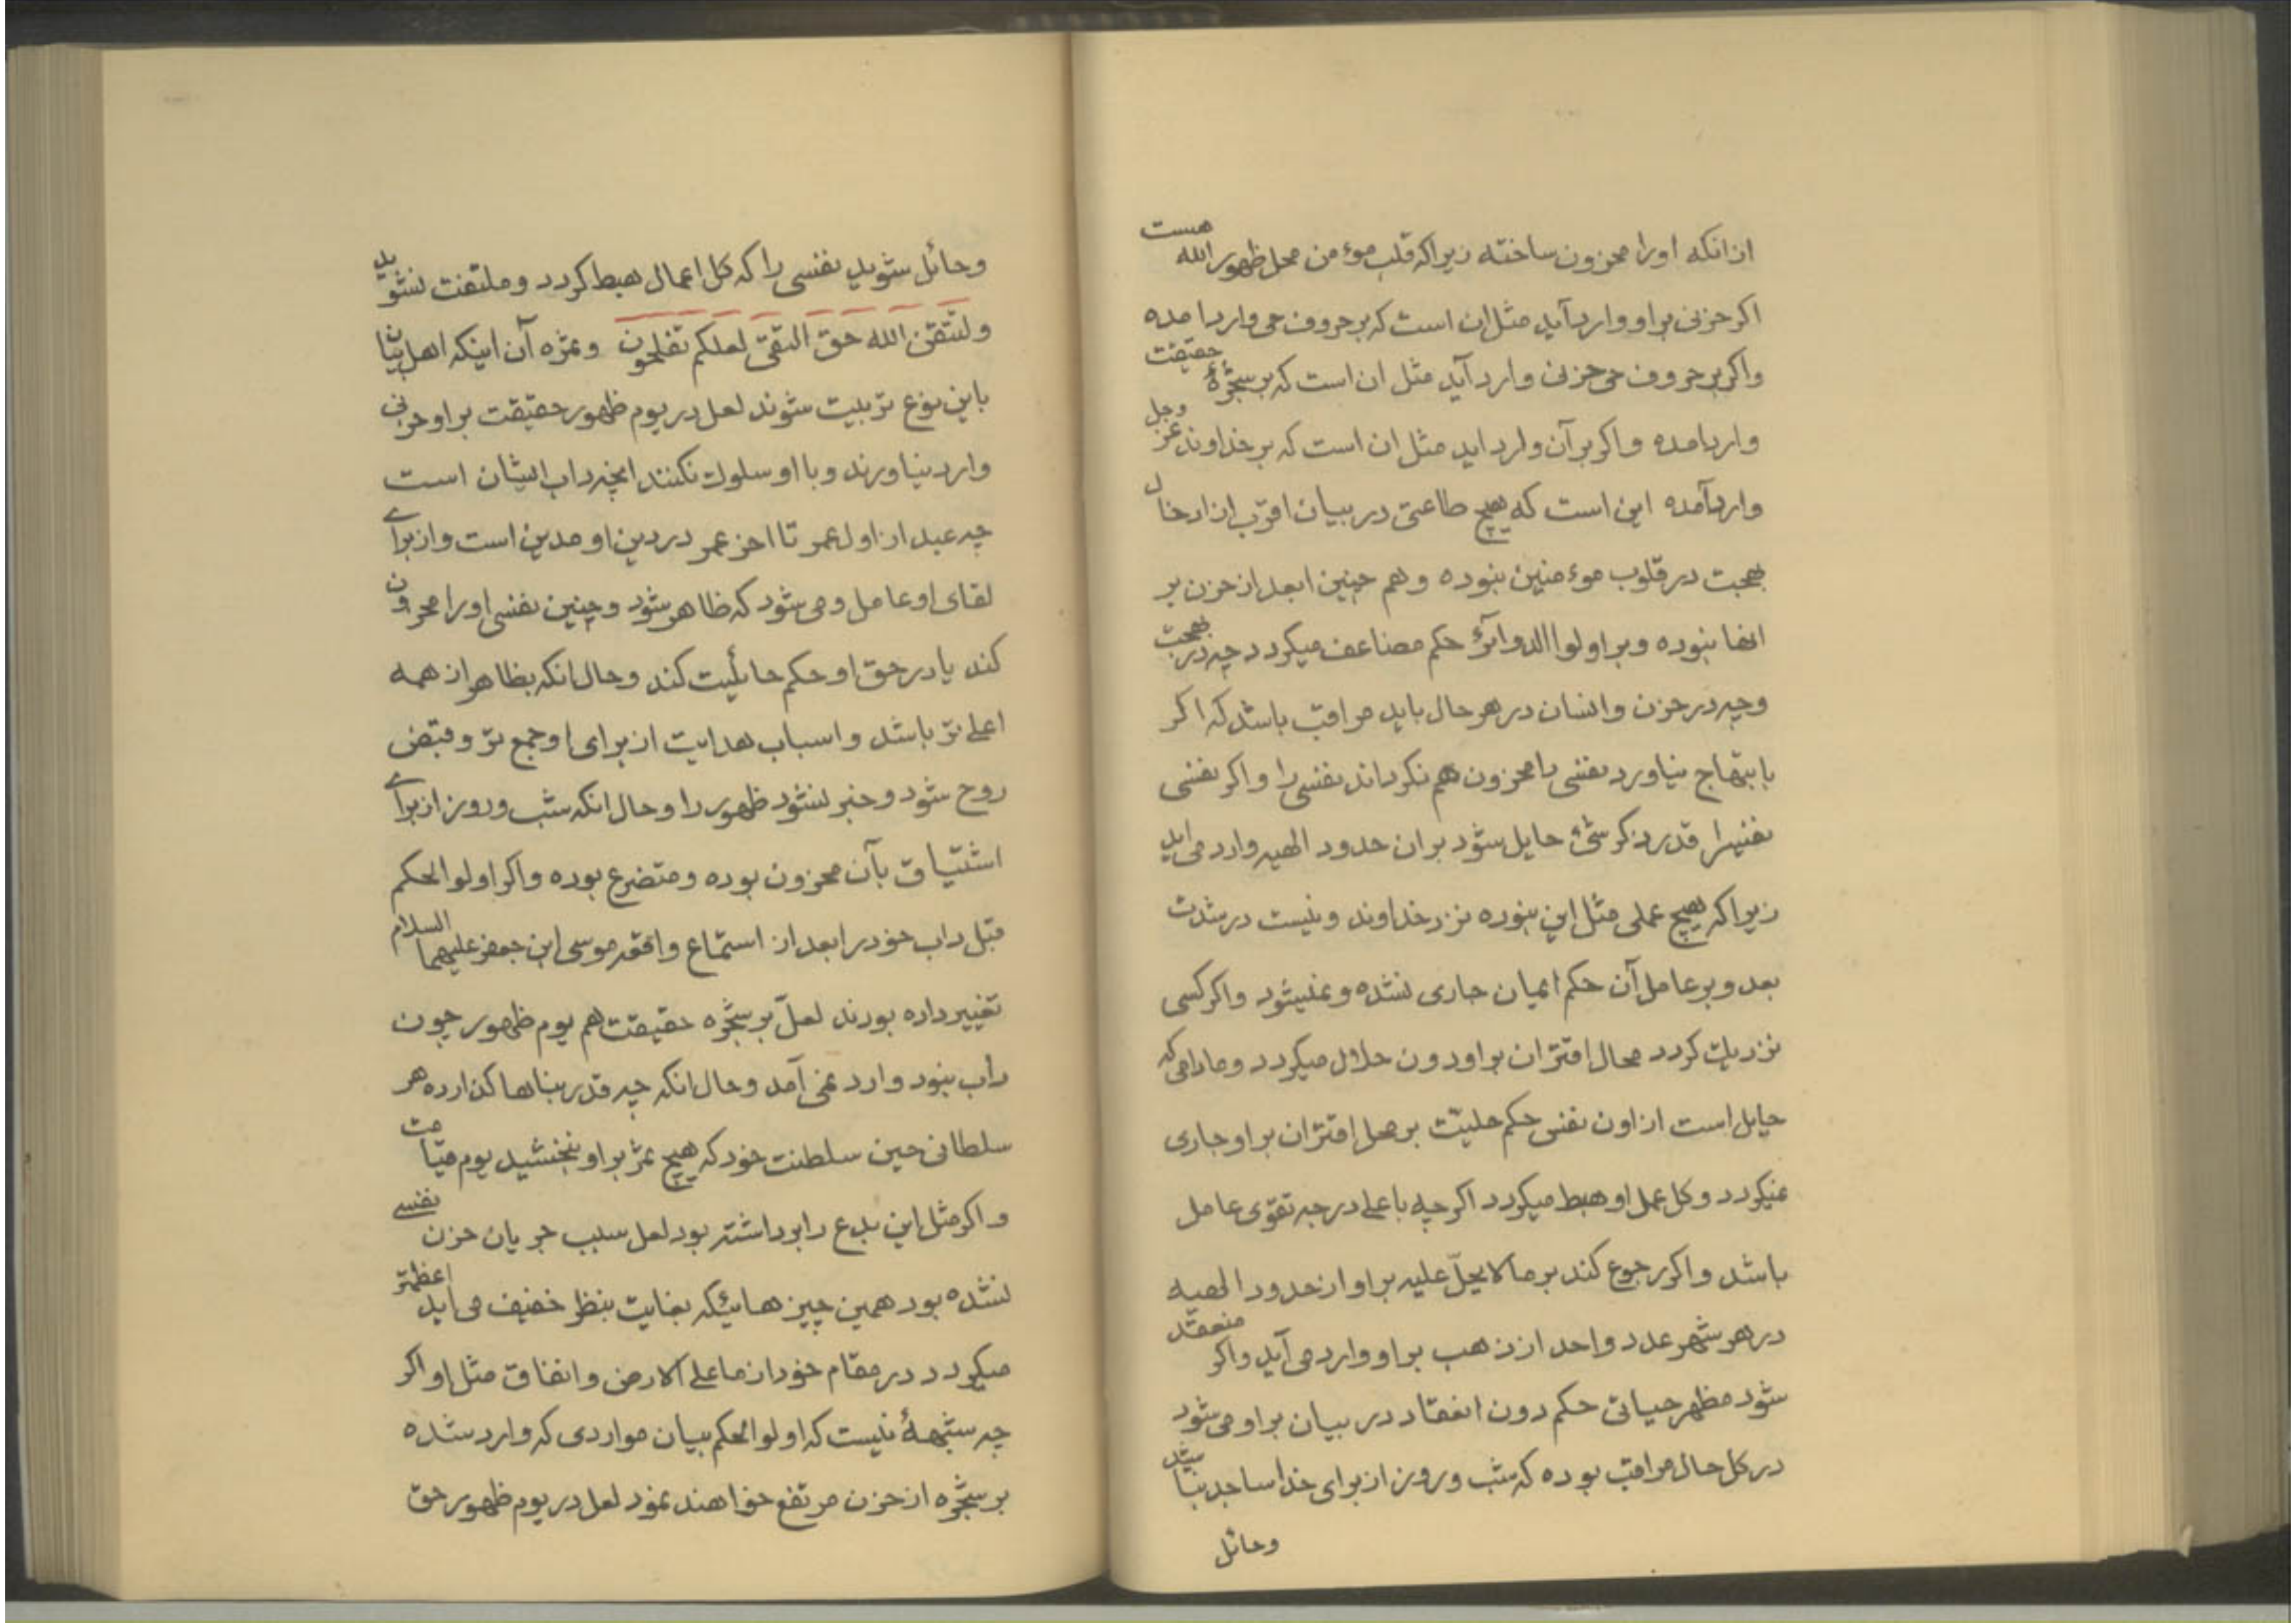 ازانکه اورا محزون ساخته زیراکه قلب موءمن محل ظهور الله هست
اکر حزنی براو وارد آید مثل ان است که بر حروف حی وارد امده
واکر بر حروف حی حزنی وارد آید مثل ان است که بر شجرهٔ حقیقت
وارد امده واکر بر آن وارد اید مثل ان است که بر خداوند عز وجل
وارد آمده این است که هیچ طاعتی در بیان اقرب از ادخال
بهجت در قلوب موءمنین نبوده وهم چنین ابعد از حزن بر
انها نبوده وبر اولوا الدوائر حکم مضاعف میکردد چه در بهجت
وچه در حزن وانسان در هر حال باید مراقب باشد که اکر
بابتهاج نیاورد نفسی را محزون هم نکرداند نفسی را واکر نفسی
نفسیرا قدر ذکر شئ حایل شود بر ان حدود الهیه وارد می اید
زیراکه هیچ عملی مثل این نبوده نزد خداوند ونیست در شدت
بعد وبر عامل آن حکم ایمان جاری نشده ونمیشود واکر کسی
نزدیک کردد محال اقتران براو دون حلال میکردد ومادامی که
حایل است از اون نفس حکم حلیّت بر محل اقتران براو جاری
نمیکردد وکل عمل او هبط میکردد اکر چه باعلی درجه تقوی عامل
باشد واکر رجوع کند بر ما لا یحلّ علیه براو از حدود الهیه
در هر شهر عدد واحد از ذهب براو وارد می آید واکر منعقد
شود مظهر حیاتی حکم دون انعقاد در بیان براو می شود
در کل حال مراقب بوده که شب وروز از برای خدا ساجد نباشید
وحائل
وحائل شوید نفسی را که کل اعمال هبط کردد وملتفت نشوید
ولتتقن الله حق التقی لعلکم تفلحون وثمره آن اینکه اهل بیان
باین نوع تربیت شوند لعل در یوم ظهور حقیقت براو حزنی
وارد نیاورند وبا او سلوک نکنند انچه داب ایشان است
چه عبد از اول عمر تا اخر عمر در دین او مدین است واز برای
لقای او عامل ومی شود که ظاهر شود وچنین نفسی اورا محزون
کند یا در حق او حکم حائلیت کند وحال انکه بظاهر از همه
اعلی تر باشد واسباب هدایت از برای او جمع تر وقبض
روح شود وخبر نشود ظهور را وحال انکه شب وروز از برای
اشتیاق بآن محزون بوده ومتضرع بوده واکر اولوالحکم
قبل داب خود را بعد از استماع واقعه موسی ابن جعفر علیهما السلام
تغییر داده بودند لعلّ بر شجره حقیقت هم یوم ظهور چون
دأب نبود وارد نمی آمد وحال انکه چه قدر بناها کذارده هر
سلطانی حین سلطنت خود که هیچ ثمر براو نبخشید یوم قیامت
واکر مثل این بدع را برداشته بود لعل سبب جریان حزن نفسی
نشده بود همین چیز هائیکه بغایت بنظر خفیف می اید اعظمتر
میکردد در مقام خود از ما علی الارض وانفاق مثل او اکر
چه شبههٔ نیست که اولوالحکم بیان مواردی که وارد شده
بر شجره از حزن مرتفع خواهند نمود لعل در یوم ظهور حق